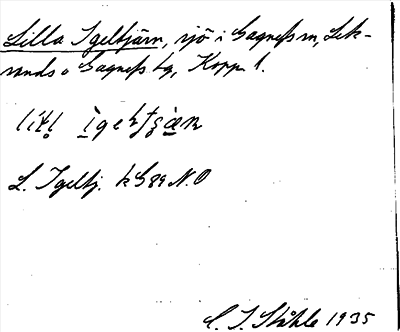 Lilla Igeltjärn, sjö i Gagnefs sn, Lek-
sands o Gagnefs tg, Kopp. l.
L. Igeltj. k G89 N.O
C. I. Ståhle 1935